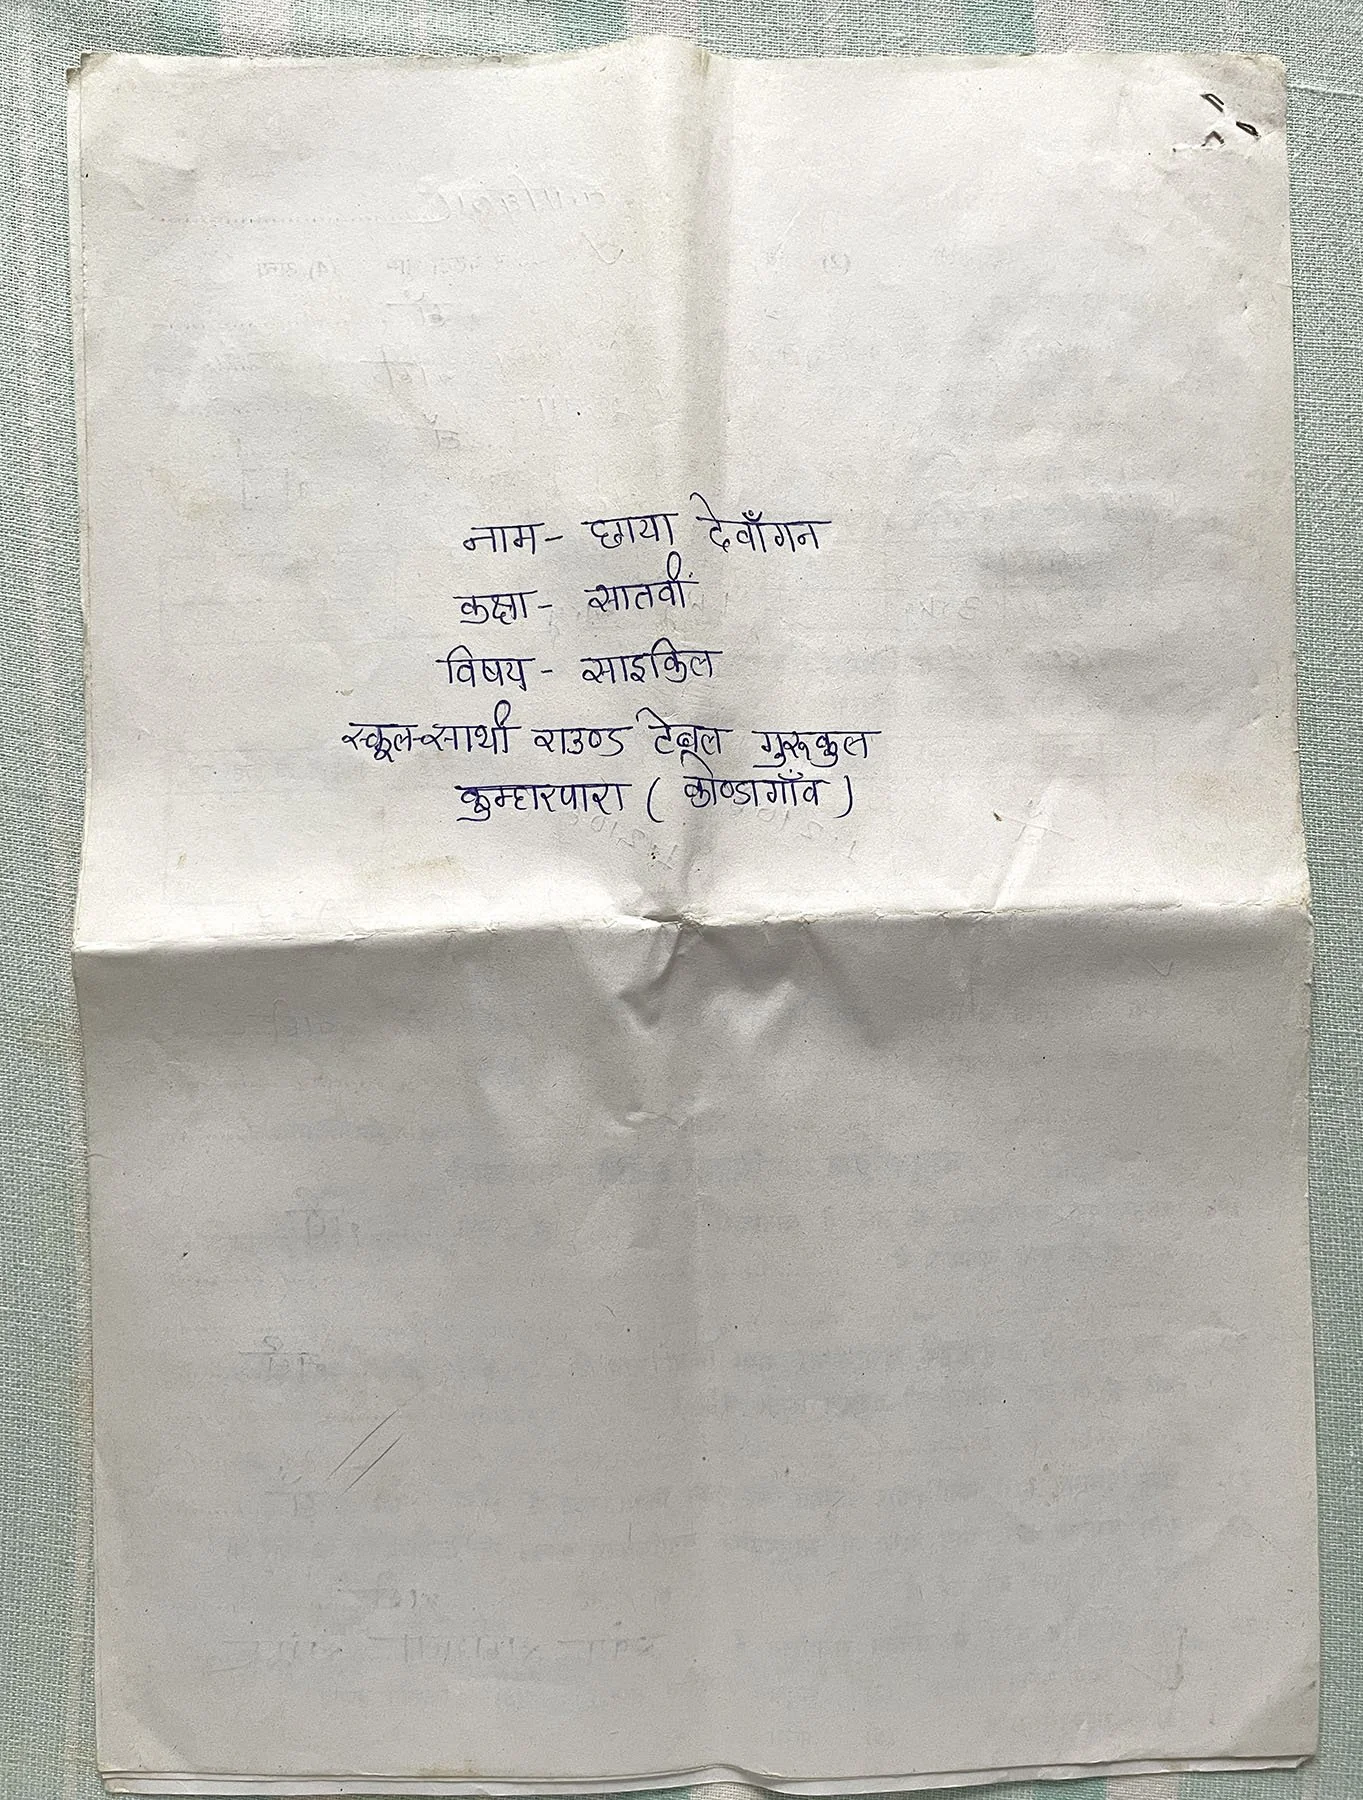 नाम - छाया देवाँगन
कक्षा - सातवीं
विषय - साइकिल
स्कूल - साथी राउण्ड टेबूल गुरूकुल
कुम्हारपारा ( कोण्डागाँव )